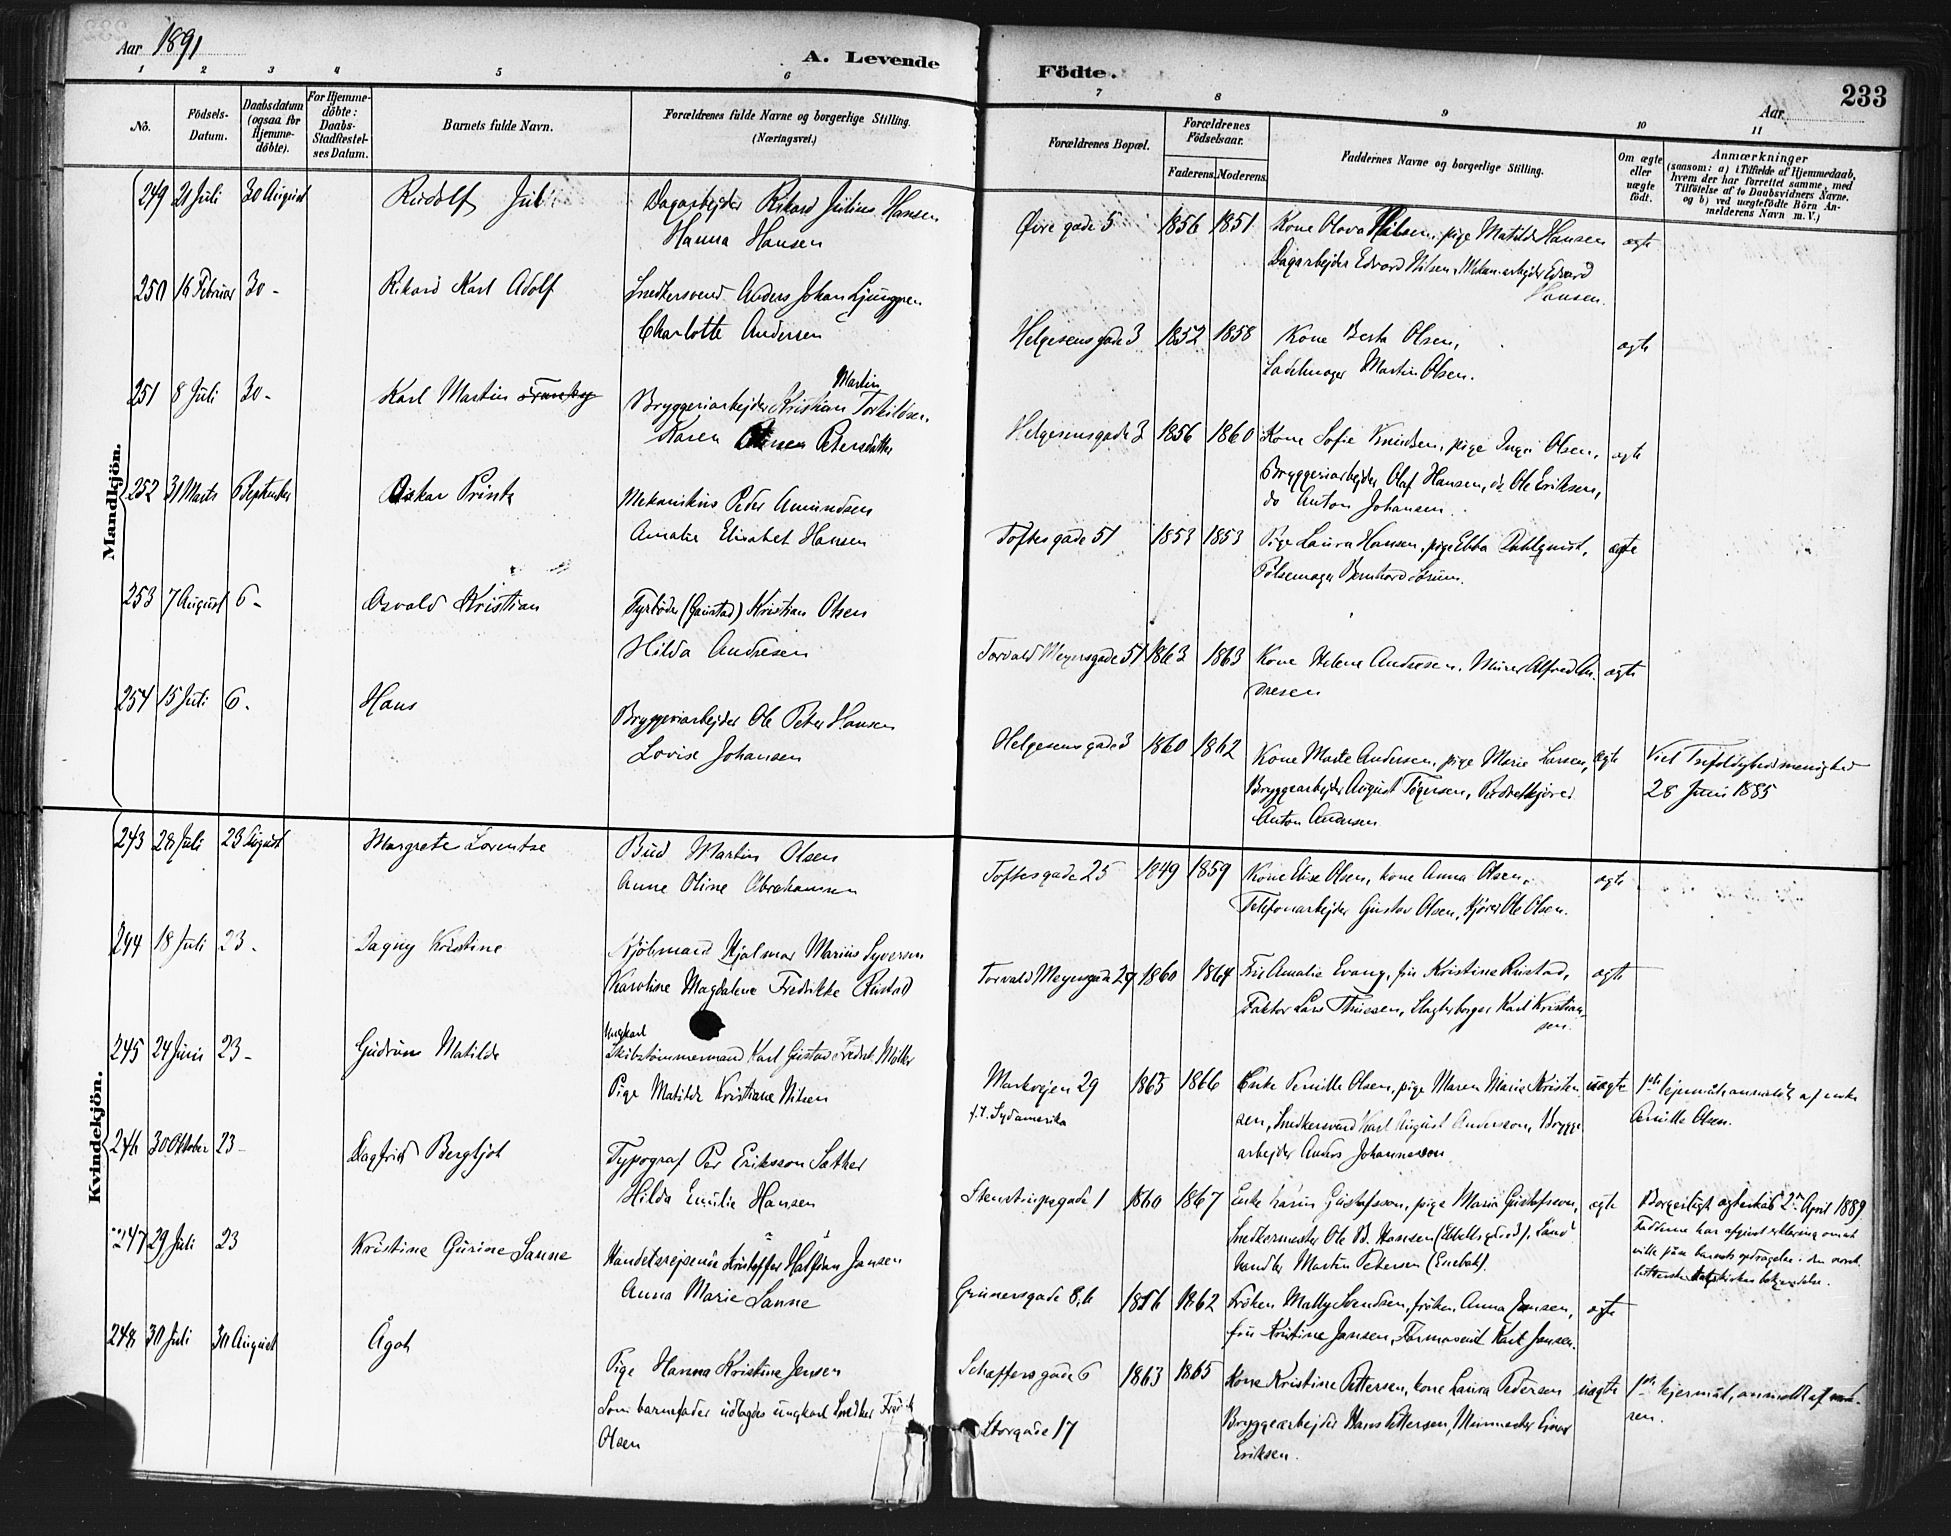 Aar 1891
A. Levende Födte.
Aar
233
1 2 3 4 5 6 7 8 9 10 11
No.
Födsels-Datum.
Daabsdatum (ogsaa for Hjemme-döbte).
For Hjemme-döbte: Daabs-Stadfæstel-ses Datum.
Barnets fulde Navn.
Forældrenes fulde Navne og borgerlige Stilling. (Næringsvei.)
Forældrenes Bopæl.
Forældrenes Födselsaar.
Faderens. Moderens.
Faddernes Navne og borgerlige Stilling.
Om ægte eller uægte födt.
Anmærkninger
(saasom: a) i Tilfælde af Hjemmedaab, hvem der har forrettet samme, med Tilföielse af to Daabsvidners Navne. og b) ved uægtefödte Börn An-melderens Navn m. V.)
Mandkjön.
249 21 Juli 30 August Rudolf Juli
Dagarbejder Rikard Julius Hansen
Hanna Hansen
Øvre gade 5 1856 1851
Kone Olava Nilsen, pige Matilde Hansen
Dagarbejder Edvard Nilsen, Mekan.arbejder Edvard
Hansen.
ægte
250 16 Februar 30 - Rikard Karl Adolf
Snedkersvend Anders Johan Ljunggren
Charlotte Andersen
Helgesensgade 3 1852 1858
Kone Berta Olsen,
Sadelmager Martin Olsen.
ægte
251 8 Juli 30 - Karl Martin
Martin
Bryggeriarbejder Kristian Torkildsen,
Karen Petersdatter
Helgesensgade 3 1856 1860
Kone Sofie Knudsen, pige Inga Olsen,
Bryggeriarbejder Olaf Hansen, do Ole Eriksen,
do Anton Johansen.
ægte
252 31 Marts 6 September Oskar Prink
Mekanikus Peder Amundsen
Amalie Elisabet Hansen
Toftesgade 51 1853 1853
Pige Laura Hansen, pige Ebba Dahlquist,
Pølsemager Bernhard
ægte
253 7 August 6 - Osvald Kristian
Fyrbøder (Gaustad) Kristian Olsen
Hilda Andresen
Torvald Meyersgade 51 1863 1863
Kone Helene Andresen, Murer Alfred An-
dresen
ægte
254 15 Juli 6. Hans
Bryggeriarbejder Ole Peter Hansen
Lovise Johansen
Helgesensgade 3 1860 1862
Kone Marte Andersen, pige Marie Larsen,
Bryggearbejder August Tögersen,
Anton Andersen
ægte
Viet Trefoldighedsmenighed
28 Juni 1885
Kvindekjön.
243 28 Juli 23 August Margrete Lorentse
Bud Martin Olsen
Anne Oline Abrahamsen
Toftesgade 25 1849 1859
Kone Elise Olsen, kone Anna Olsen,
Telefonarbejder Gustav Olsen, Kjører Ole Olsen.
ægte
244 18 Juli 23 - Dagny Kristine
Kjöbmand Hjalmar Marius Syversen
Karoline Magdalene Fredrikke Rustad
Torvald Meyersgade 29 1860 1864
Fru Amalie Evang, fru Kristine Rustad,
Faktor Lars Thuesen, Slagterborger Karl Kristian-
sen.
ægte
245 24 Juni 23 - Gudrun Matilde
Ungkarl
Skibstømmermand Karl Gustav Fredrik Møller
Pige Matilde Kristiane Nilsen
Markvejen 29
f.T. Sydamerika
1863 1866
Enke Pernille Olsen, pige Maren Marie Kristen
sen, Snedkersvend Karl August Andersson, Brygge
arbejder Anders Johannesson
uægte
1ste lejermål anmeldt af enke
Pernille Olsen.
246 30 Oktober 23 - Dagfrid Bergljot
Typograf Per Eriksson Sæther
Hilda Emilie Hansen
Stenstrupsgade 1 1860 1867
Enke Karin Gustafsson, pige Maria Gustafsson,
Snedkermester Ole B. Hansen Land
handler Martin Petersen (Enebak).
ægte
Borgerligt ægteskab 2 April 1889
Fadderne har afgivet erklæring om at
ville påse barnets opdragelse i den norsk
lutterske bekjendelse.
247 29 Juli 23 Kristine Gurine Sanne
Handelsrejsende Kristoffer Halfdan Jansen
Anna Marie Sanne
Grünersgade 8,b 1856 1862
Frøken Mally Svendsen, frøken Anna Jansen,
fru Kristine Jansen, Farmaceut Karl Jansen.
ægte
248 30 Juli 30 August Ågot
Pige Hanna Kristine Jensen
Som barnefader udlagdes ungkarl Snedker Fredrik
Olsen
Schaffersgade 6
Storgade 17
1863 1865
Kone Kristine Pettersen, kone Laura Pedersen
Bryggearbejder Hans Pettersen, Murmester Einar
Eriksen.
uægte
1ste lejermål, anmeldt af mode-
ren.